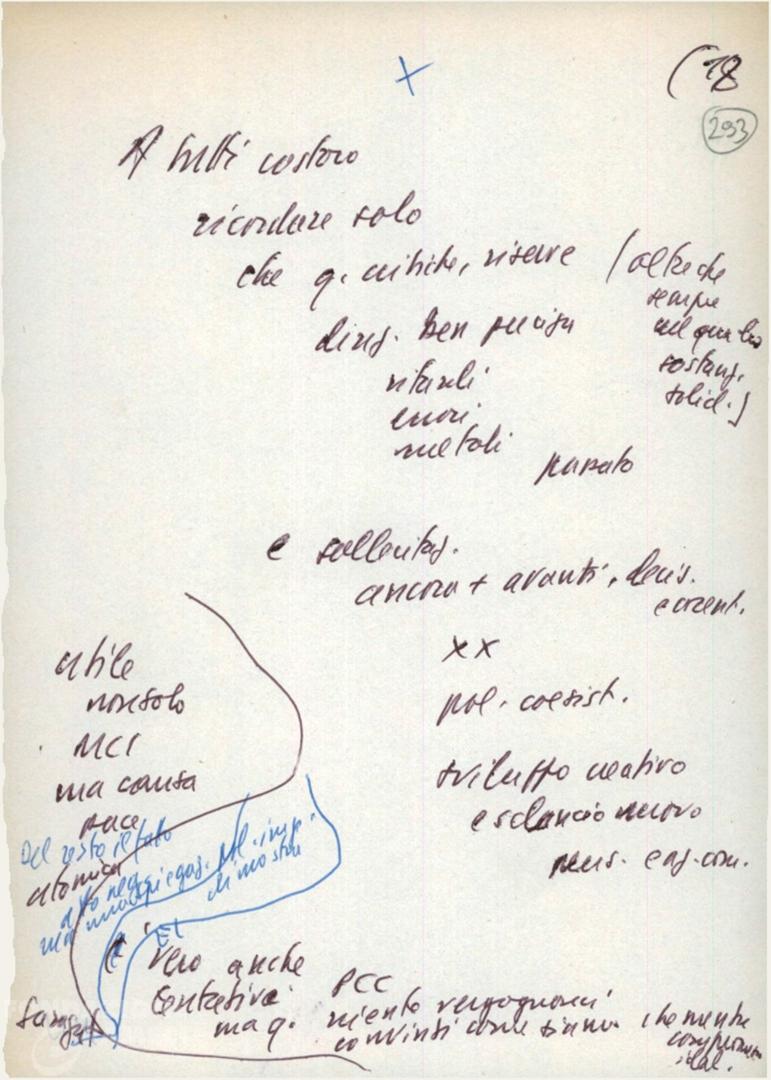 +
(18
293
A tutti costoro
ricordare solo
che q. critiche, riserve
(oltre che
sempre
nel quadro
sostanz.
solid.)
dirig. ben precisa
ritardi
errori
metodi
passato
e sollecitaz.
ancora + avanti, decis.
e coerent.
xx
pol. coesist.
sviluppo creativo
e slancio nuovo
pens. e az. com.
utile
non solo
MCI
ma causa
pace
Del resto il fatto
atomica
di mostra
È
vero anche
tentativi
ma q.
PCC
niente vergognarci
convinti come siamo che niente